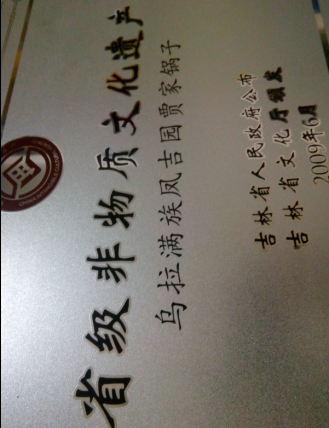 省级非物质文化遗产
乌拉满族凤吉园贾家锅子
吉林省人民政府公布
吉林省文化厅颁发
2009年6月